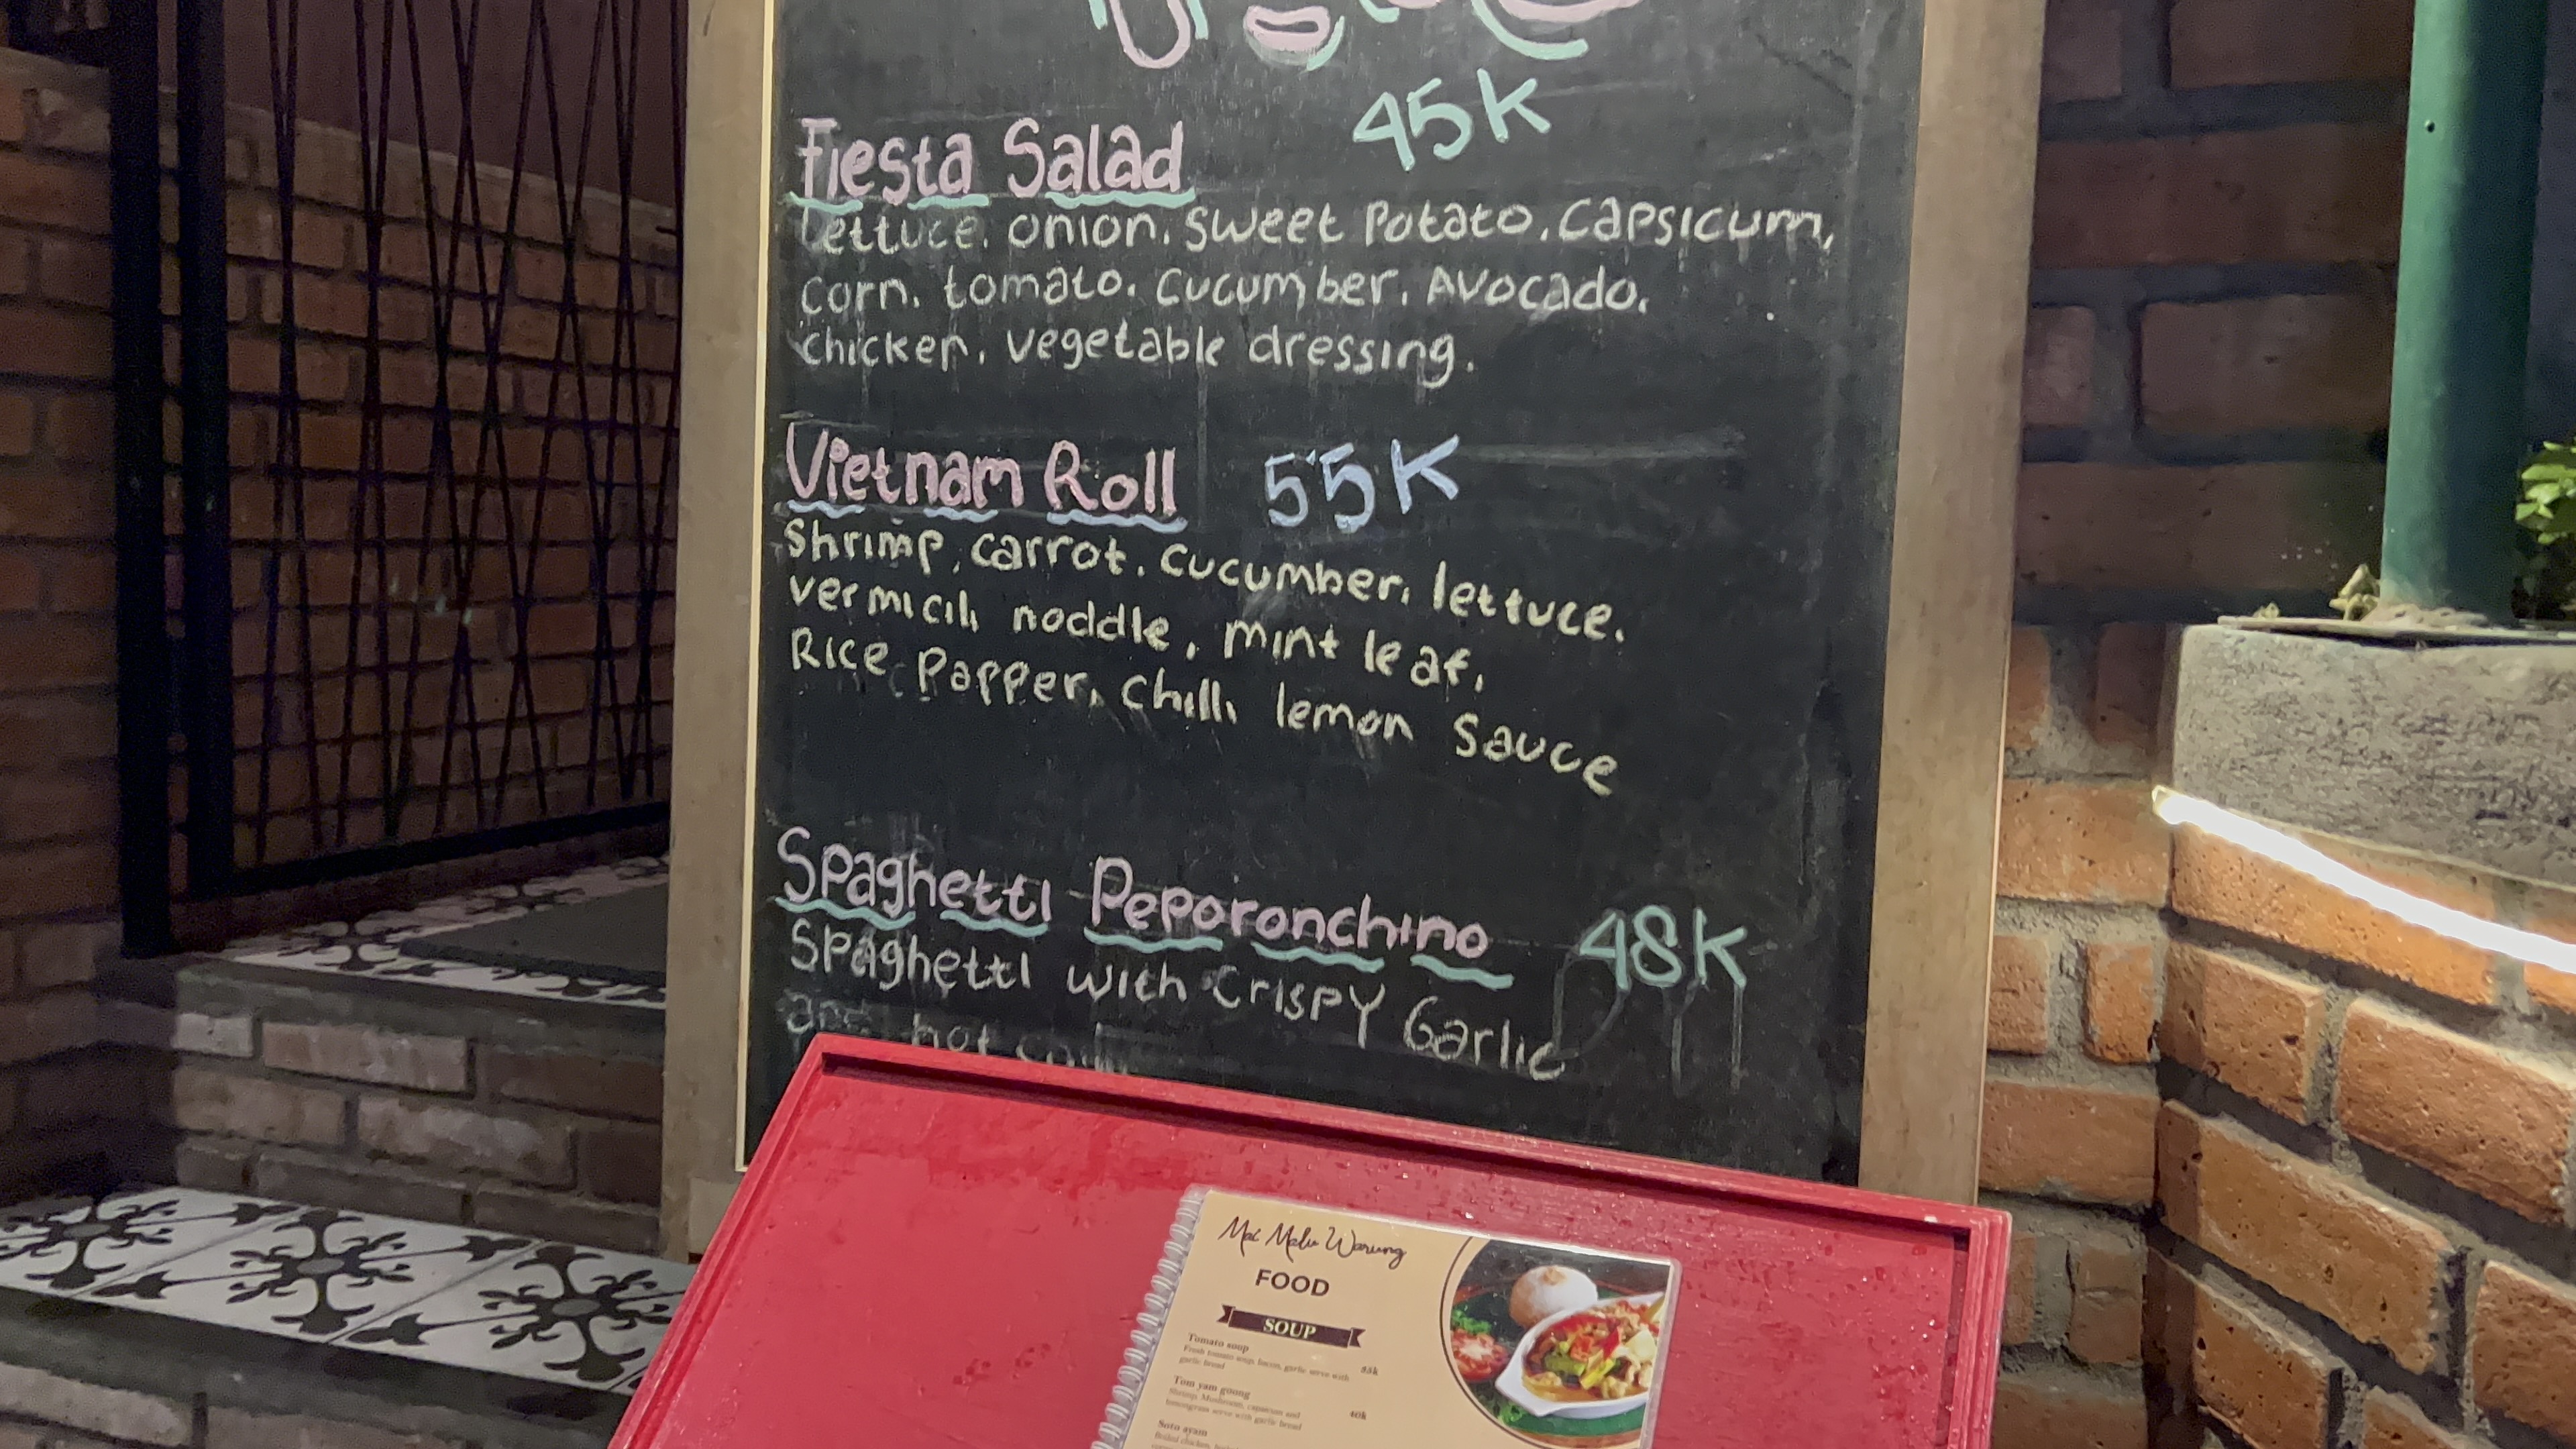 45K
Fiesta Salad
Lettuce. onion. sweet potato. capsicum,
corn. tomato. cucumber. Avocado.
chicken. vegetable dressing.
Vietnam Roll 55K
Shrimp, carrot. cucumber. lettuce.
vermicili noddle, mint leaf,
Rice Papper, chilli lemon sauce
Spaghetti Peporonchino 48K
Spaghetti with crispy Garlic
and hot
Mai Malu Warung
FOOD
SOUP
Tomato soup
Fresh tomato soup, bacon, garlic serve with
garlic bread
Tom yam goong 40k
Shrimp, Mushroom, capsicum and
lemongrass serve with garlic bread
Soto ayam